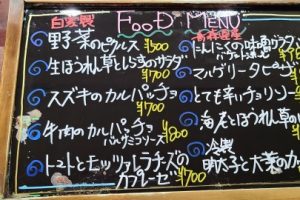 FOOD MENU
自家製
野菜のピクルス ¥500
生ほうれん草としらすのサラダ ¥700
スズキのカルパッチョ ¥700
牛肉のカルパッチョ
バルサミコソース ¥800
トマトとモッツァレラチーズの
カプレーゼ ¥700
青森県産
にんにくの
マルゲリータピザ
とても辛いチョリソー
海老とほうれん草の
冷製
明太子と大葉のカ